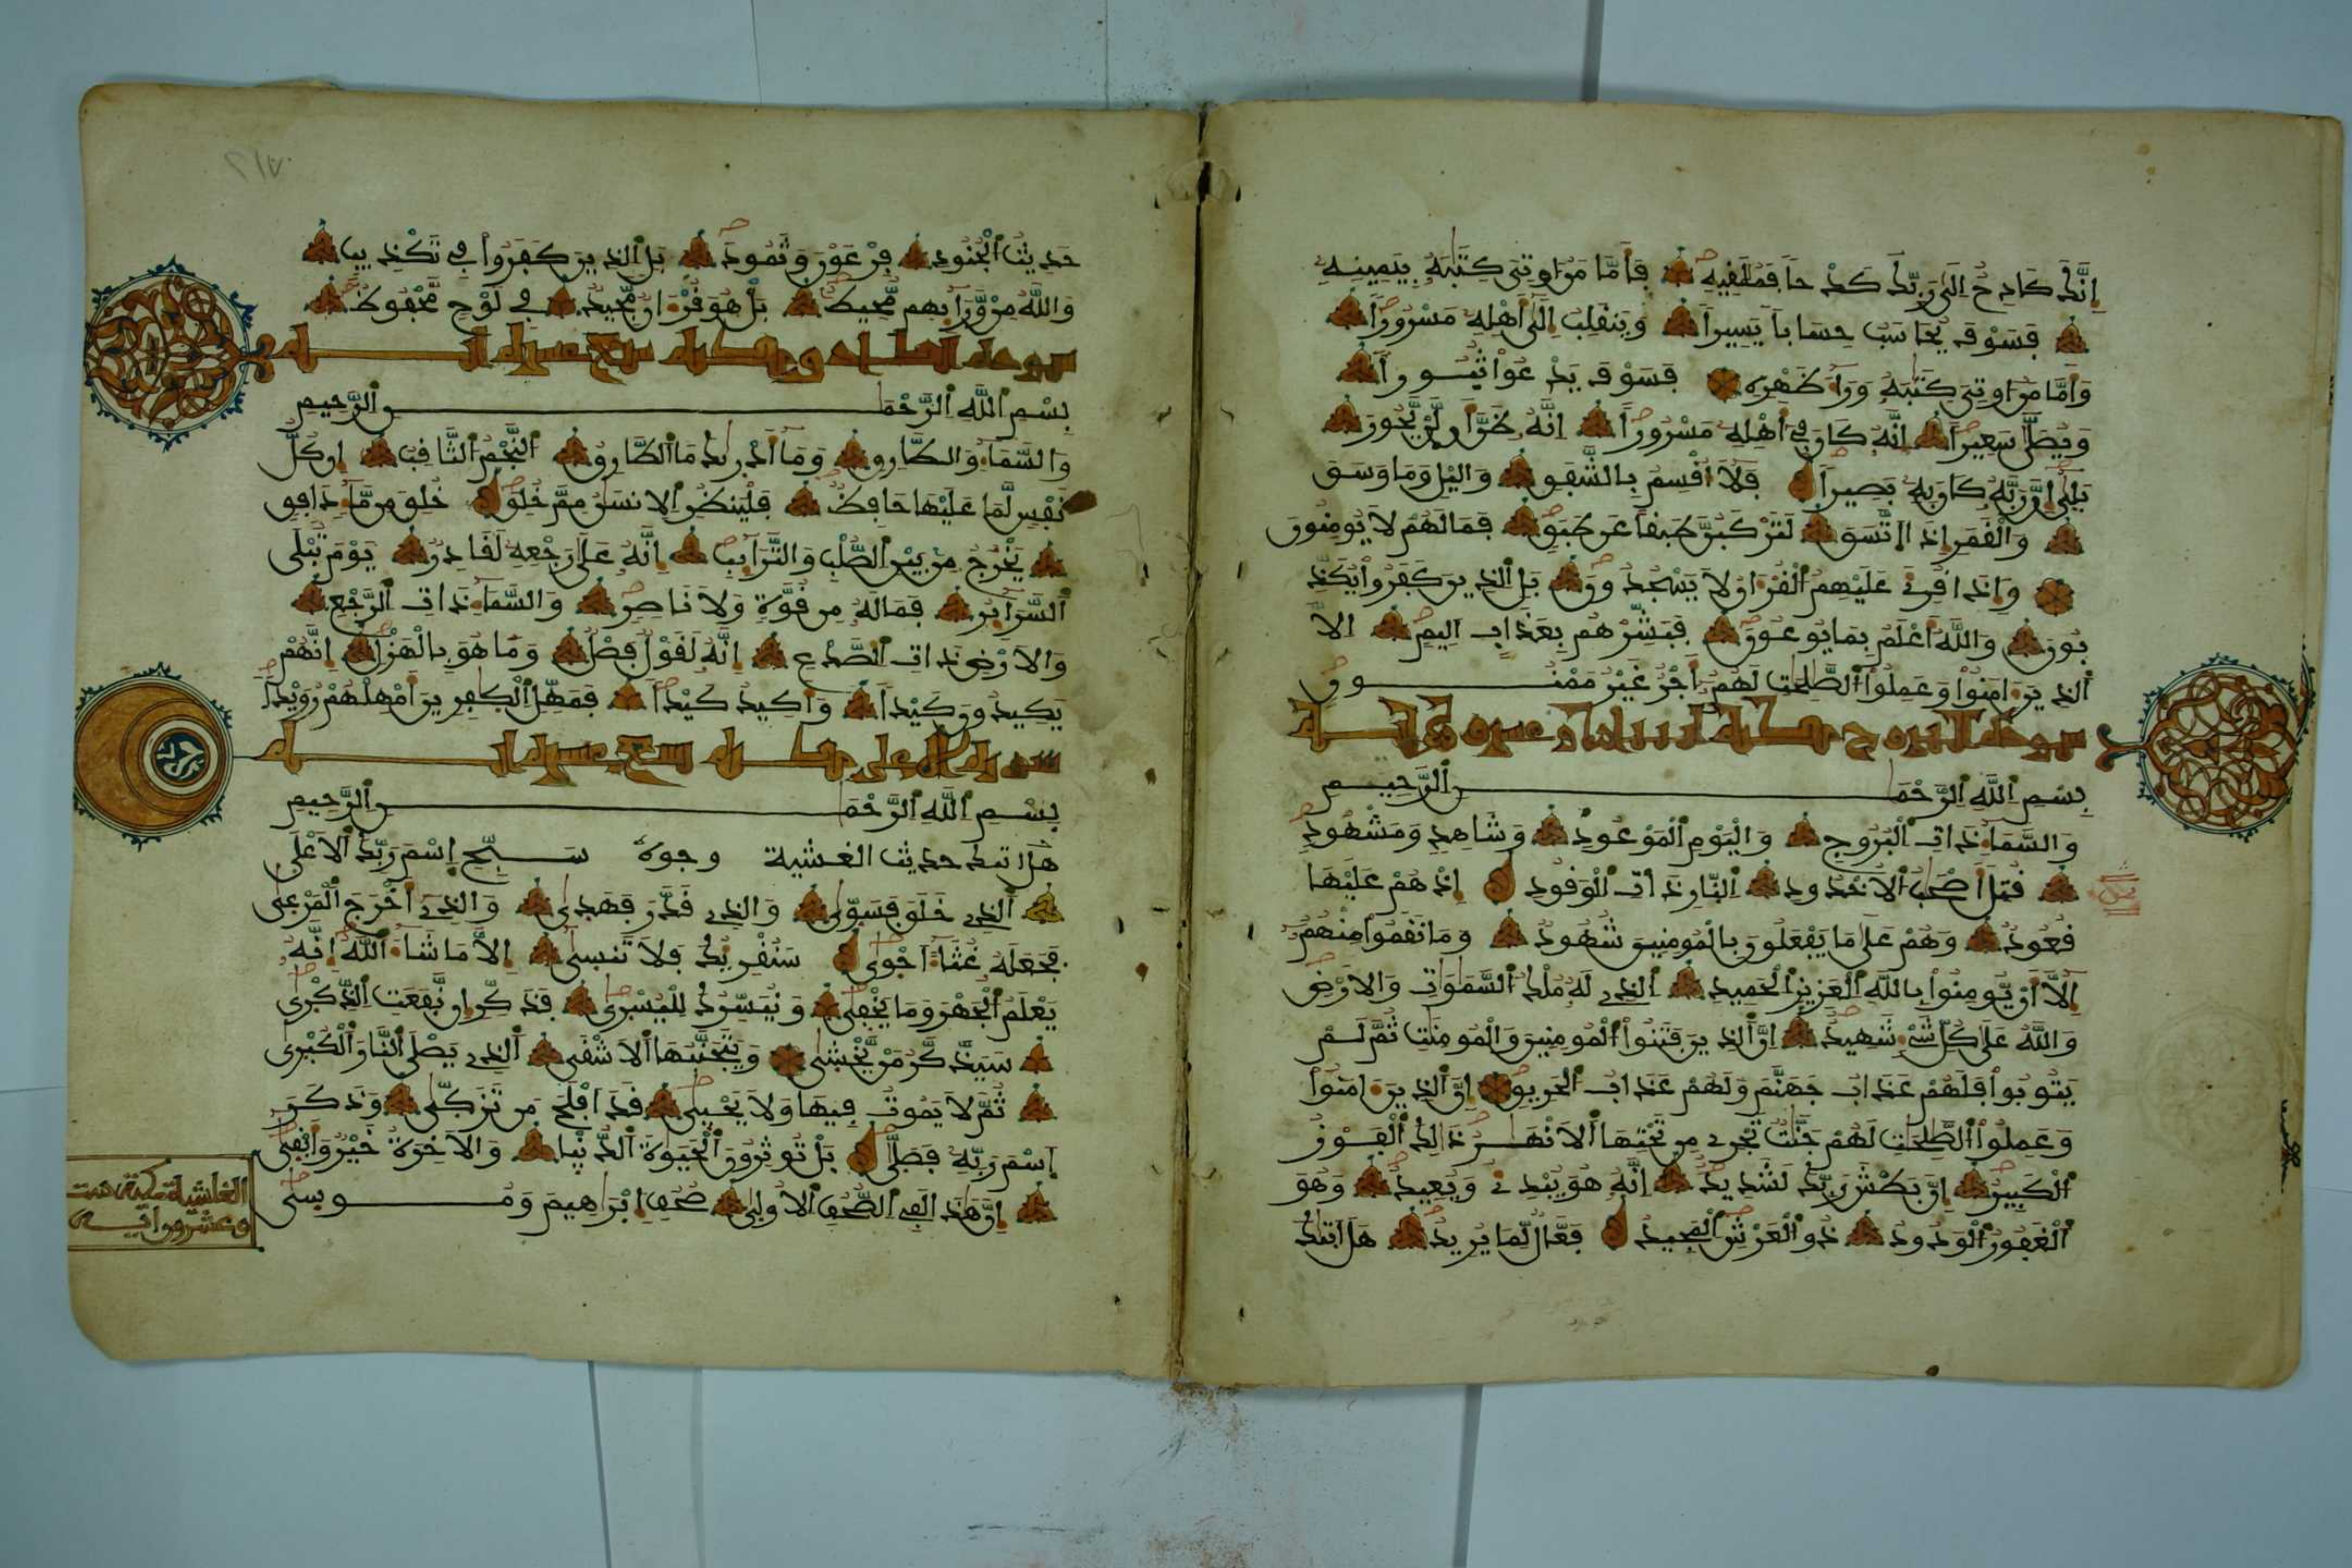 إِنَّكَ كَادِحُ اِلَىٰ رَبِّكَ كَدْحاَ فَمُلَٰفِيهِ فَأَمَّا مَنُ اوتِيَ كِتَٰبَهُۥ بِيَمِينِهِۦ
فَسَوْفَ يُحَاسَبُ حِسَاباَ يَسِيراَ وَيَنفَلِبُ إِلَىٰٓ أَهْلِهِۦ مَسْرُوراَ
وَأَمَّا مَنُ اوتِيَ كِتَٰبَهُۥ وَرَآءَ ظَهْرِهِۦ فَسَوْفَ يَدْعُواْ ثُبُوراَ
وَيُصَلَّىٰ سَعِيراَ اِنَّهُۥ كَانَ فِےٓ أَهْلِهِۦ مَسْرُوراَ اِنَّهُۥ ظَنَّ أَن لَّنْ يَّحُورَ
بَلَىٰٓ إِنَّ رَبَّهُۥ كَانَ بِهِۦ بَصِيراَ فَلَآ أُفْسِمُ بِالشَّفَقِ وَاليْلِ وَمَا وَسَقَ
وَالْفَمَرِ إِذَا اَتَّسَقَ لَتَرْكَبُنَّ طَبَفاً عَن طَبَقٍ فَمَا لَهُمْ لَا يُومِنُونَ
وَإِذَا فُرِئَ عَلَيْهِمُ الْفُرْءَانُ لَا يَسْجُدُونَ بَلِ الذِينَ كَفَرُواْ يُكَذِّ
بُونَ وَاللَّهُ أَعْلَمُ بِمَا يُوعُونَ فَبَشِّرْهُم بِعَذَابٍ اَلِيمٍ اِلَّا
الذِينَ ءَامَنُواْ وَعَمِلُواْ الصَّٰلِحَٰتِ لَهُمُۥٓ أَجْرٌ غَيْرُ مَمْنُونٍ
بِسْمِ اللَّهِ الرَّحْمَٰنِ الرَّحِيمِ
وَالسَّمَآءِ ذَاتِ الْبُرُوجِ وَالْيَوْمِ الْمَوْعُودِ وَشَاهِدٍ وَمَشْهُودٍ
فُتِلَ أَصْحَٰبُ الُاخْدُودِ النَّارِ ذَاتِ الْوَفُودِ إِذْ هُمْ عَلَيْهَا
فُعُودٌ وَهُمْ عَلَىٰ مَا يَفْعَلُونَ بِالْمُومِنِينَ شُهُودٌ وَمَا نَفَمُواْ مِنْهُمُۥٓ
إِلَّآ أَنْ يُّومِنُواْ بِاللَّهِ الْعَزِيزِ الْحَمِيدِ الذِے لَهُۥ مُلْكُ السَّمَٰوَٰتِ وَالَارْضِ
وَاللَّهُ عَلَىٰ كُلِّ شَےْءٍ شَهِيدٌ اِنَّ الذِينَ فَتَنُواْ الْمُومِنِينَ وَالْمُومِنَٰتِ ثُمَّ لَمْ
يَتُوبُواْ فَلَهُمْ عَذَابُ جَهَنَّمَ وَلَهُمْ عَذَابُ الْحَرِيقِ إِنَّ الذِينَ ءَامَنُواْ
وَعَمِلُواْ الصَّٰلِحَٰتِ لَهُمْ جَنَّٰتٌ تَجْرِے مِن تَحْتِهَا الَانْهَٰرُ ذَٰلِكَ الْفَوْزُ
الْكَبِيرُ إِنَّ بَطْشَ رَبِّكَ لَشَدِيدٌ اِنَّهُۥ هُوَ يُبْدِئُ وَيُعِيدُ وَهُوَ
الْغَفُورُ الْوَدُودُ ذُو الْعَرْشِ الْمَجِيدُ فَعَّالٌ لِّمَا يُرِيدُ هَلَ اَتَىٰكَ
حَدِيثُ الْجُنُودِ فِرْعَوْنَ وَثَمُودَ بَلِ الذِينَ كَفَرُواْ فِے تَكْذِيبٍ
وَاللَّهُ مِنْ وَّرَآئِهِم مُّحِيطٌ بَلْ هُوَ فُرْءَانٌ مَّجِيدٌ فِے لَوْحٍ مَّحْفُوظٌ
سورة الطارق مكية سبع عشرة اية
بِسْمِ اللَّهِ الرَّحْمَٰنِ الرَّحِيمِ
وَالسَّمَآءِ وَالطَّارِقِ وَمَآ أَدْرَىٰكَ مَا الطَّارِقُ النَّجْمُ الثَّافِبُ إِن كُلُّ
نَفْسٍ لَّمَا عَلَيْهَا حَافِظٌ فَلْيَنظُرِ الِانسَٰنُ مِمَّ خُلِقَ خُلِقَ مِن مَّآءٍ دَافِقٍ
يَخْرُجُ مِنۢ بَيْنِ الصُّلْبِ وَالتَّرَآئِبِ إِنَّهُۥ عَلَىٰ رَجْعِهِۦ لَفَادِرٌ يَوْمَ تُبْلَى
السَّرَآئِرُ فَمَا لَهُۥ مِن فُوَّةٍ وَلَا نَاصِرٍ وَالسَّمَآءِ ذَاتِ الرَّجْعِ
وَالَارْضِ ذَاتِ الصَّدْعِ إِنَّهُۥ لَفَوْلٌ فَصْلٌ وَمَا هُوَ بِالْهَزْلِ إِنَّهُمْ
يَكِيدُونَ كَيْداً وَأَكِيدُ كَيْداً فَمَهِّلِ الْكٰفِرِينَ أَمْهِلْهُمْ رُوَيْداً
سورة الاعلى مكية تسع عشرة اية
بِسْمِ اللَّهِ الرَّحْمَٰنِ الرَّحِيمِ
هل اتىك حديث الغشية وجوه سَبِّحِ اِسْمَ رَبِّكَ الَاعْلَى
الذِے خَلَقَ فَسَوَّىٰ وَالذِے فَدَّرَ فَهَدَىٰ وَالذِےٓ أَخْرَجَ الْمَرْعَىٰ
فَجَعَلَهُۥ غُثَآءً اَحْوَىٰ سَنُفْرِئُكَ فَلَا تَنسَىٰٓ إِلَّا مَا شَآءَ اللَّهُ إِنَّهُۥ
يَعْلَمُ الْجَهْرَ وَمَا يَخْفَىٰ وَنُيَسِّرُكَ لِلْيُسْرَىٰ فَذَكِّرِ اِن نَّفَعَتِ الذِّكْرَىٰ
سَيَذَّكَّرُ مَنْ يَّخْشَىٰ وَيَتَجَنَّبُهَا الَاشْفَى الذِے يَصْلَى النَّارَ الْكُبْرَىٰ
ثُمَّ لَا يَمُوتُ فِيهَا وَلَا يَحْيَىٰ فَدَ اَفْلَحَ مَن تَزَكَّىٰ وَذَكَرَ
اَسْمَ رَبِّهِۦ فَصَلَّىٰ بَلْ تُوثِرُونَ الْحَيَوٰةَ الدُّنْيَا وَالَاخِرَةُ خَيْرٌ وَأَبْفَىٰٓ
إِنَّ هَٰذَا لَفِے الصُّحُفِ الُاولَىٰ صُحُفِ إِبْرَٰهِيمَ وَمُوسَىٰ
الغاشية مكية ست
وعشرون اية